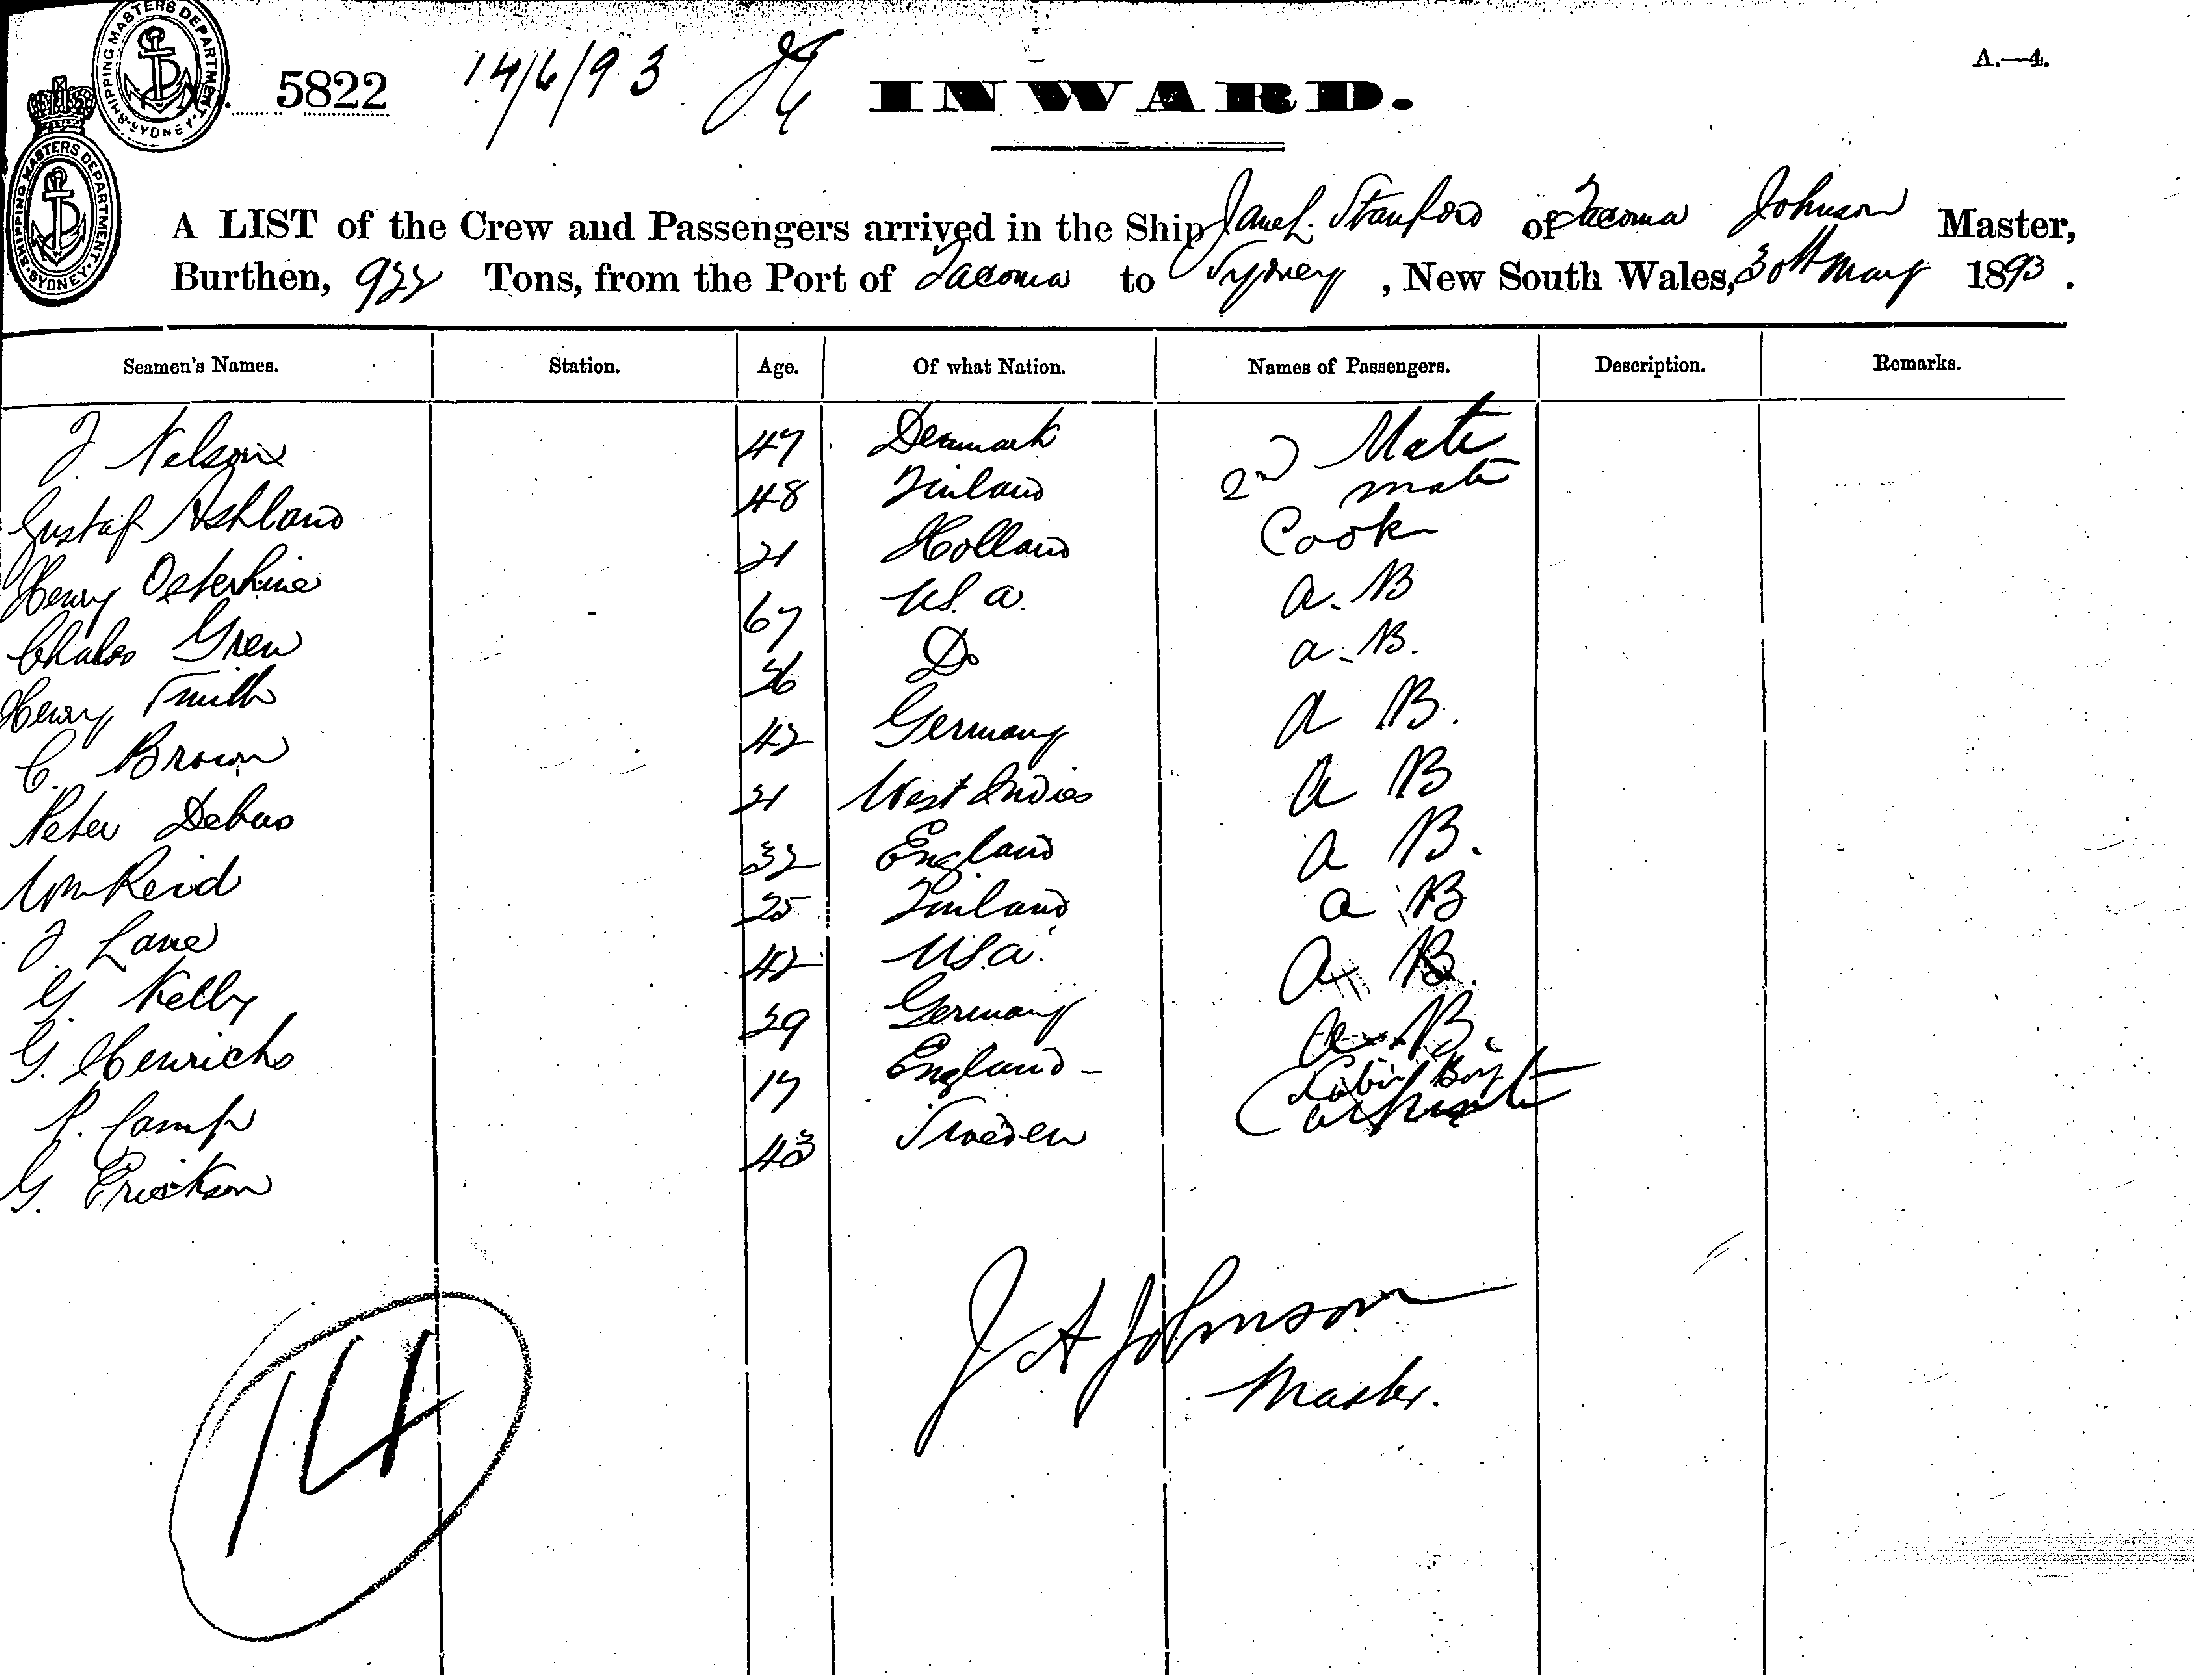 SHIPPING MASTERS DEPARTMENT SYDNEY
No. 5822 14/6/93 INWARD. A.—4.
SHIPPING MASTERS DEPARTMENT SYDNEY
A LIST of the Crew and Passengers arrived in the Ship Stanford of Tacoma Johnson Master,
Burthen, 922 Tons, from the Port of Tacoma to Sydney, New South Wales, 30th May 1893.
Seamen's Names. Station. Age. Of what Nation. Names of Passengers. Description. Remarks.
J. Nelson 47 Denmark Mate
Gustaf Ashland 48 Finland 2nd mate
Henry 21 Holland Cook
Grew 67 U.S.a. a. B
Henry Smith 26 Do a. B.
C. Brown 42 Germany a B.
Peter Debus 21 West Indies a B
Wm Reid 32 England a B.
J Lane 25 Finland a B
G. Kelly 42 U.S.a. a B.
G. Henrichs 29 Germany a B.
P. Camp 17 England - Cabin Boy
G. Erickson 43 Sweden Carpenter
J A Johnson
Master.
14